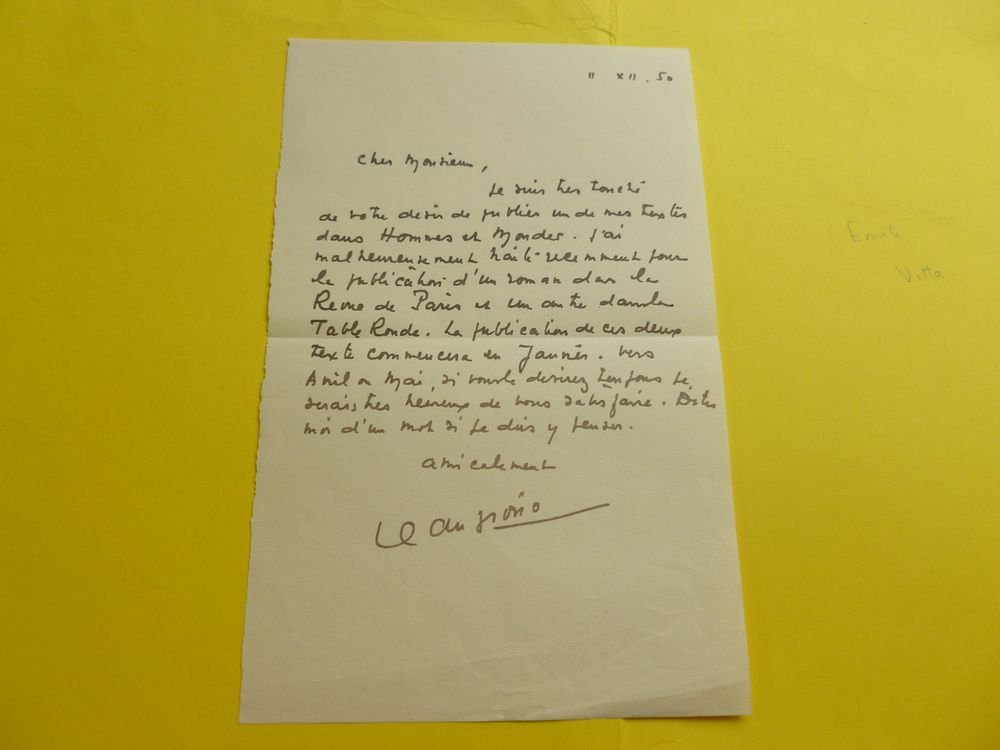 11 XII. 50
Cher Monsieur,
Je suis très touché
de votre désir de publier un de mes textes
dans Hommes et Mondes. J'ai
malheureusement traité récemment pour
la publication d'un roman dans la
Revue de Paris et un autre dans la
Table Ronde. La publication de ces deux
texte commencera en Janvier. Vers
Avril ou Mai, si vous le désirez toujours je
serais très heureux de vous satisfaire. Dites
moi d'un mot si je dois y penser.
amicalement
Jean Giono
Emile
Vitta